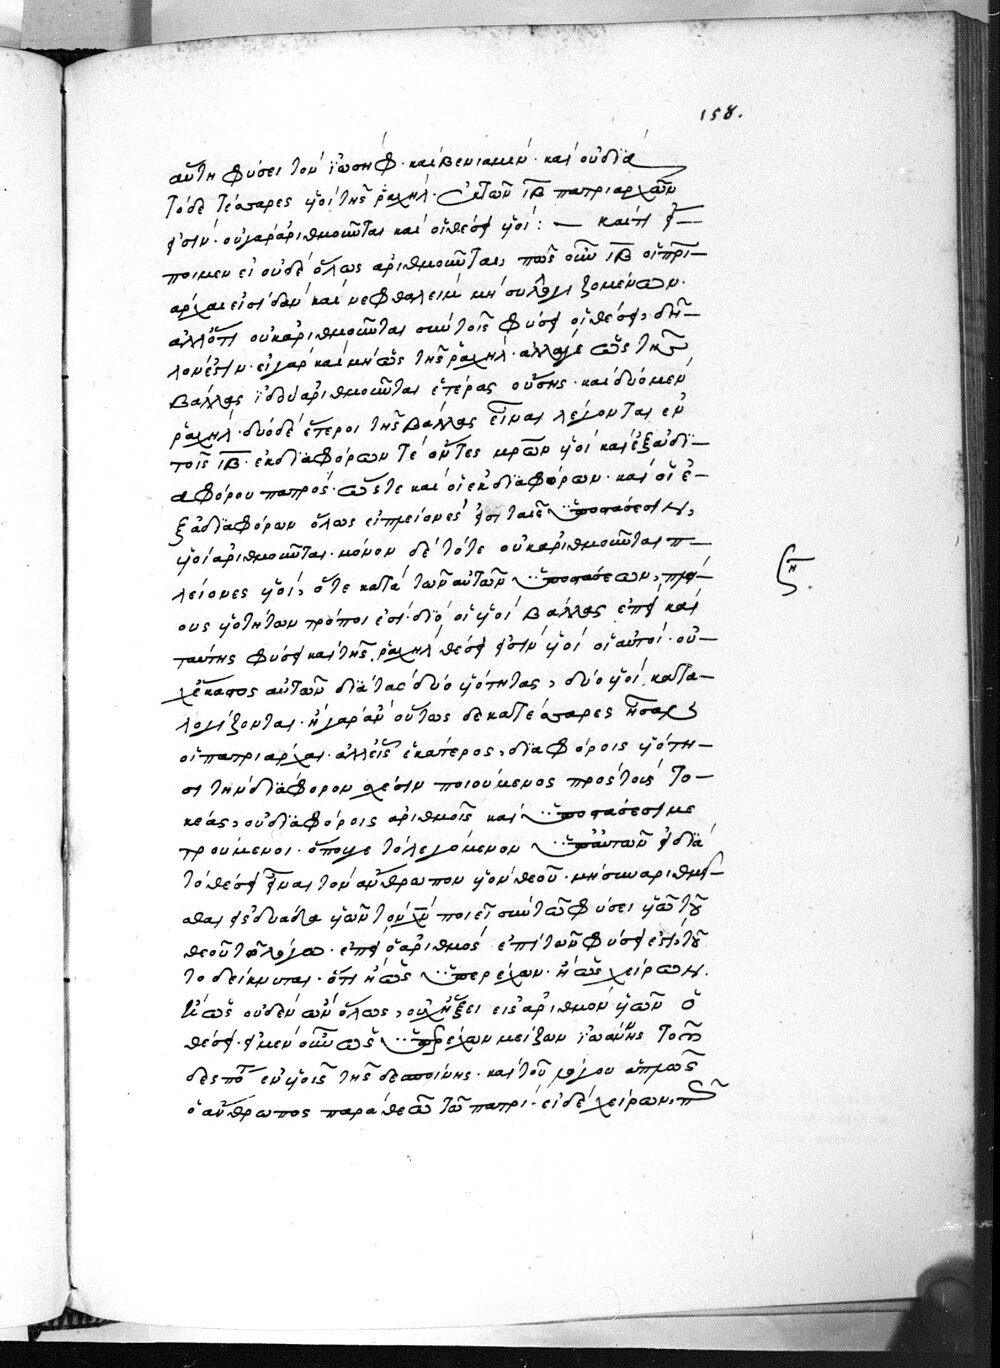 158.
αὕτη φύσει τὸν ἰωσὴφ · καὶ βενιαμὴν · καὶ οὐ διὰ
τόδε τέσσαρες υἱοὶ τῆς ῥαχήλ · ἐκ τῶν ιβ πατριαρχῶν
οὐ γὰρ ἀριθμοῦνται καὶ οἱ θέσει υἱοί : — καί τι
ποιμεν εἰ οὐδὲ ὅλως ἀριθμοῦνται, πῶς οὖν ιβ οἱ πρι-
άρχαι εἰσὶ δὰν καὶ νεφθαλεὶμ μὴ συλλογιζομένων ·
ἀλλ' ὅτι οὐκ ἀριθμοῦνται σὺν τοῖς φύσει οἱ θέσει, δῆ-
λόν ἐστιν · εἰ γὰρ καὶ μὴ ὡς τῆς ῥαχήλ · ἀλλά γε ὡς τῆς
βάλλας ἰδίᾳ ἀριθμοῦνται ἑτέρας οὔσης · καὶ δύο μὲν
ῥαχήλ · δύο δὲ ἕτεροι τῆς βάλλας εἶναι λέγονται ἐν
τοῖς ιβ · ἐκ διαφόρων τε ὄντες μρῶν υἱοὶ καὶ ἐξ ἀδι-
αφόρου πατρός · ὥστε καὶ οἱ ἐκ διαφόρων · καὶ οἱ ἐ-
ξ ἀδιαφόρων ὅλως εἰ πλείονές εἰσι ταῖς ὑποστάσεσιν,
υἱοὶ ἀριθμοῦνται · μόνον δὲ τότε οὐκ ἀριθμοῦνται π-
λείονες υἱοί, ὅτε κατὰ τῶν αὐτῶν ὑποστάσεων,
ους υἱοτήτων τρόποι εἰσί · διὸ οἱ υἱοὶ βάλλας ἐπεὶ καὶ
ταύτης φύσει καὶ τῆς ῥαχὴλ θέσει εἰσὶν υἱοὶ οἱ αὐτοί · οὐ-
χ ἕκαστος αὐτῶν διὰ τὰς δύο υἱότητας, δύο υἱοὶ κατα-
λογίζονται · ἦ γὰρ ἂν οὕτως δεκατέσσαρες ἦσαν
οἱ πατριάρχαι · ἀλλ' εἷς ἑκάτερος, διαφόροις υἱότη-
σι τὴν διάφορον σχέσιν ποιούμενος πρὸς τοὺς το-
κέας, οὐ διαφόροις ἀριθμοῖς καὶ ὑποστάσεσι με
τρούμενοι · ὅπου γε τὸ λεγόμενον
τὸ θέσει εἶναι τὸν ἄνθρωπον υἱὸν θεοῦ · μὴ συναριθμεῖ-
σθαι εἰς δυάδα υἱῶν τὸν χν ποιεῖ σὺν τῷ φύσει υἱῷ τοῦ
θεοῦ τῷ λόγῳ · ἐπεὶ ὁ ἀριθμὸς ἐπὶ τῶν φύσει ἐστί,
το δείκνυται · ὅτι ἢ ὡς ὑπερέχων · ἢ ὡς χείρων.
ἢ ὡς οὐδὲν ὢν ὅλως, οὐχ ἥξει εἰς ἀριθμὸν υἱῶν ὁ
θέσει · εἰ μὲν οὖν ὡς ὑπερέχων μείζων ἰωάννης τοῦ
δεσπό ἐν υἱοῖς τῆς δεσποίνης · καὶ τοῦ λόγου ἁπλῶς
ὁ ἄνθρωπος παρὰ θεῷ τῷ πατρί · εἰ δὲ χείρων,